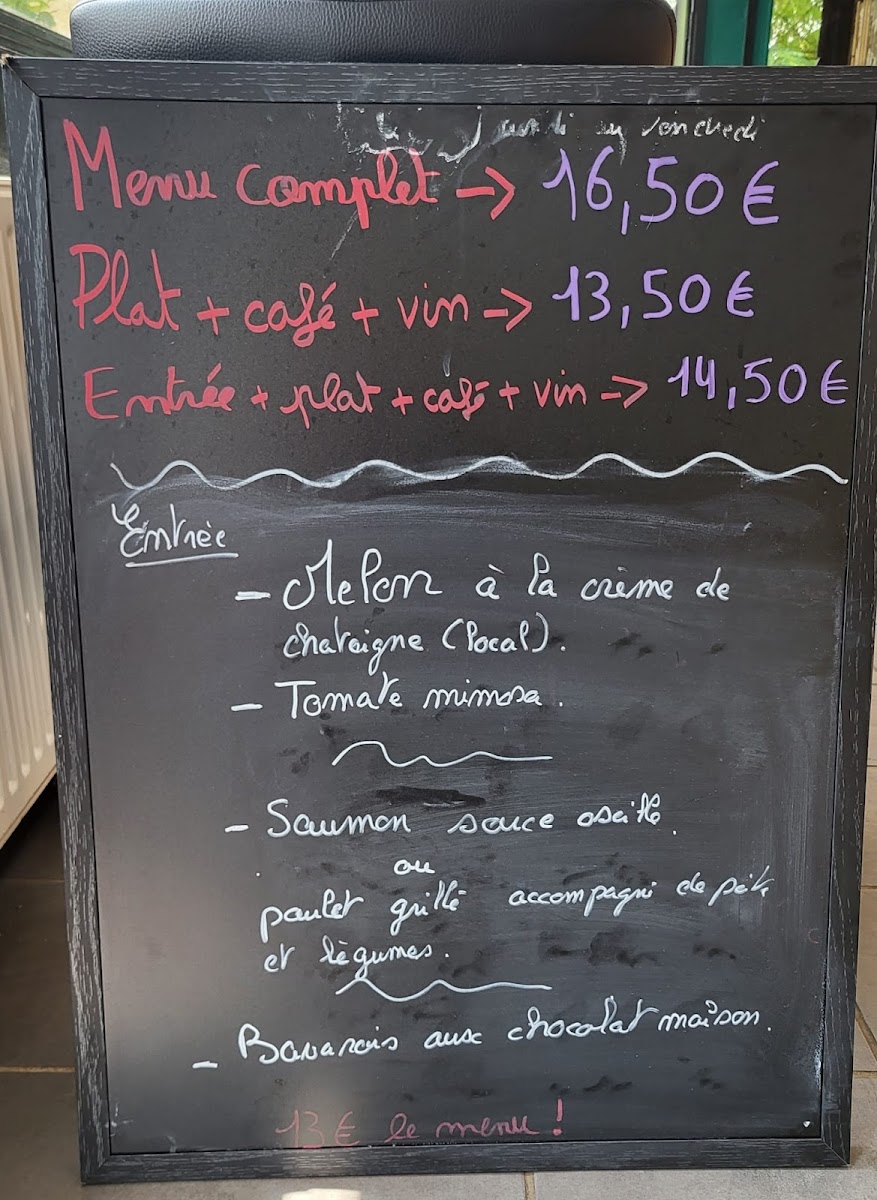 Lundi au vendredi
Menu complet -> 16,50 €
Plat + café + vin -> 13,50 €
Entrée + plat + café + vin -> 14,50 €
Entrée
- Melon à la crème de
chataigne (local).
- Tomate mimosa.
- Saumon sauce oseille.
ou
poulet grillé accompagné de pâte
et légumes.
- Bavarois aux chocolat maison.
13 € le menu !